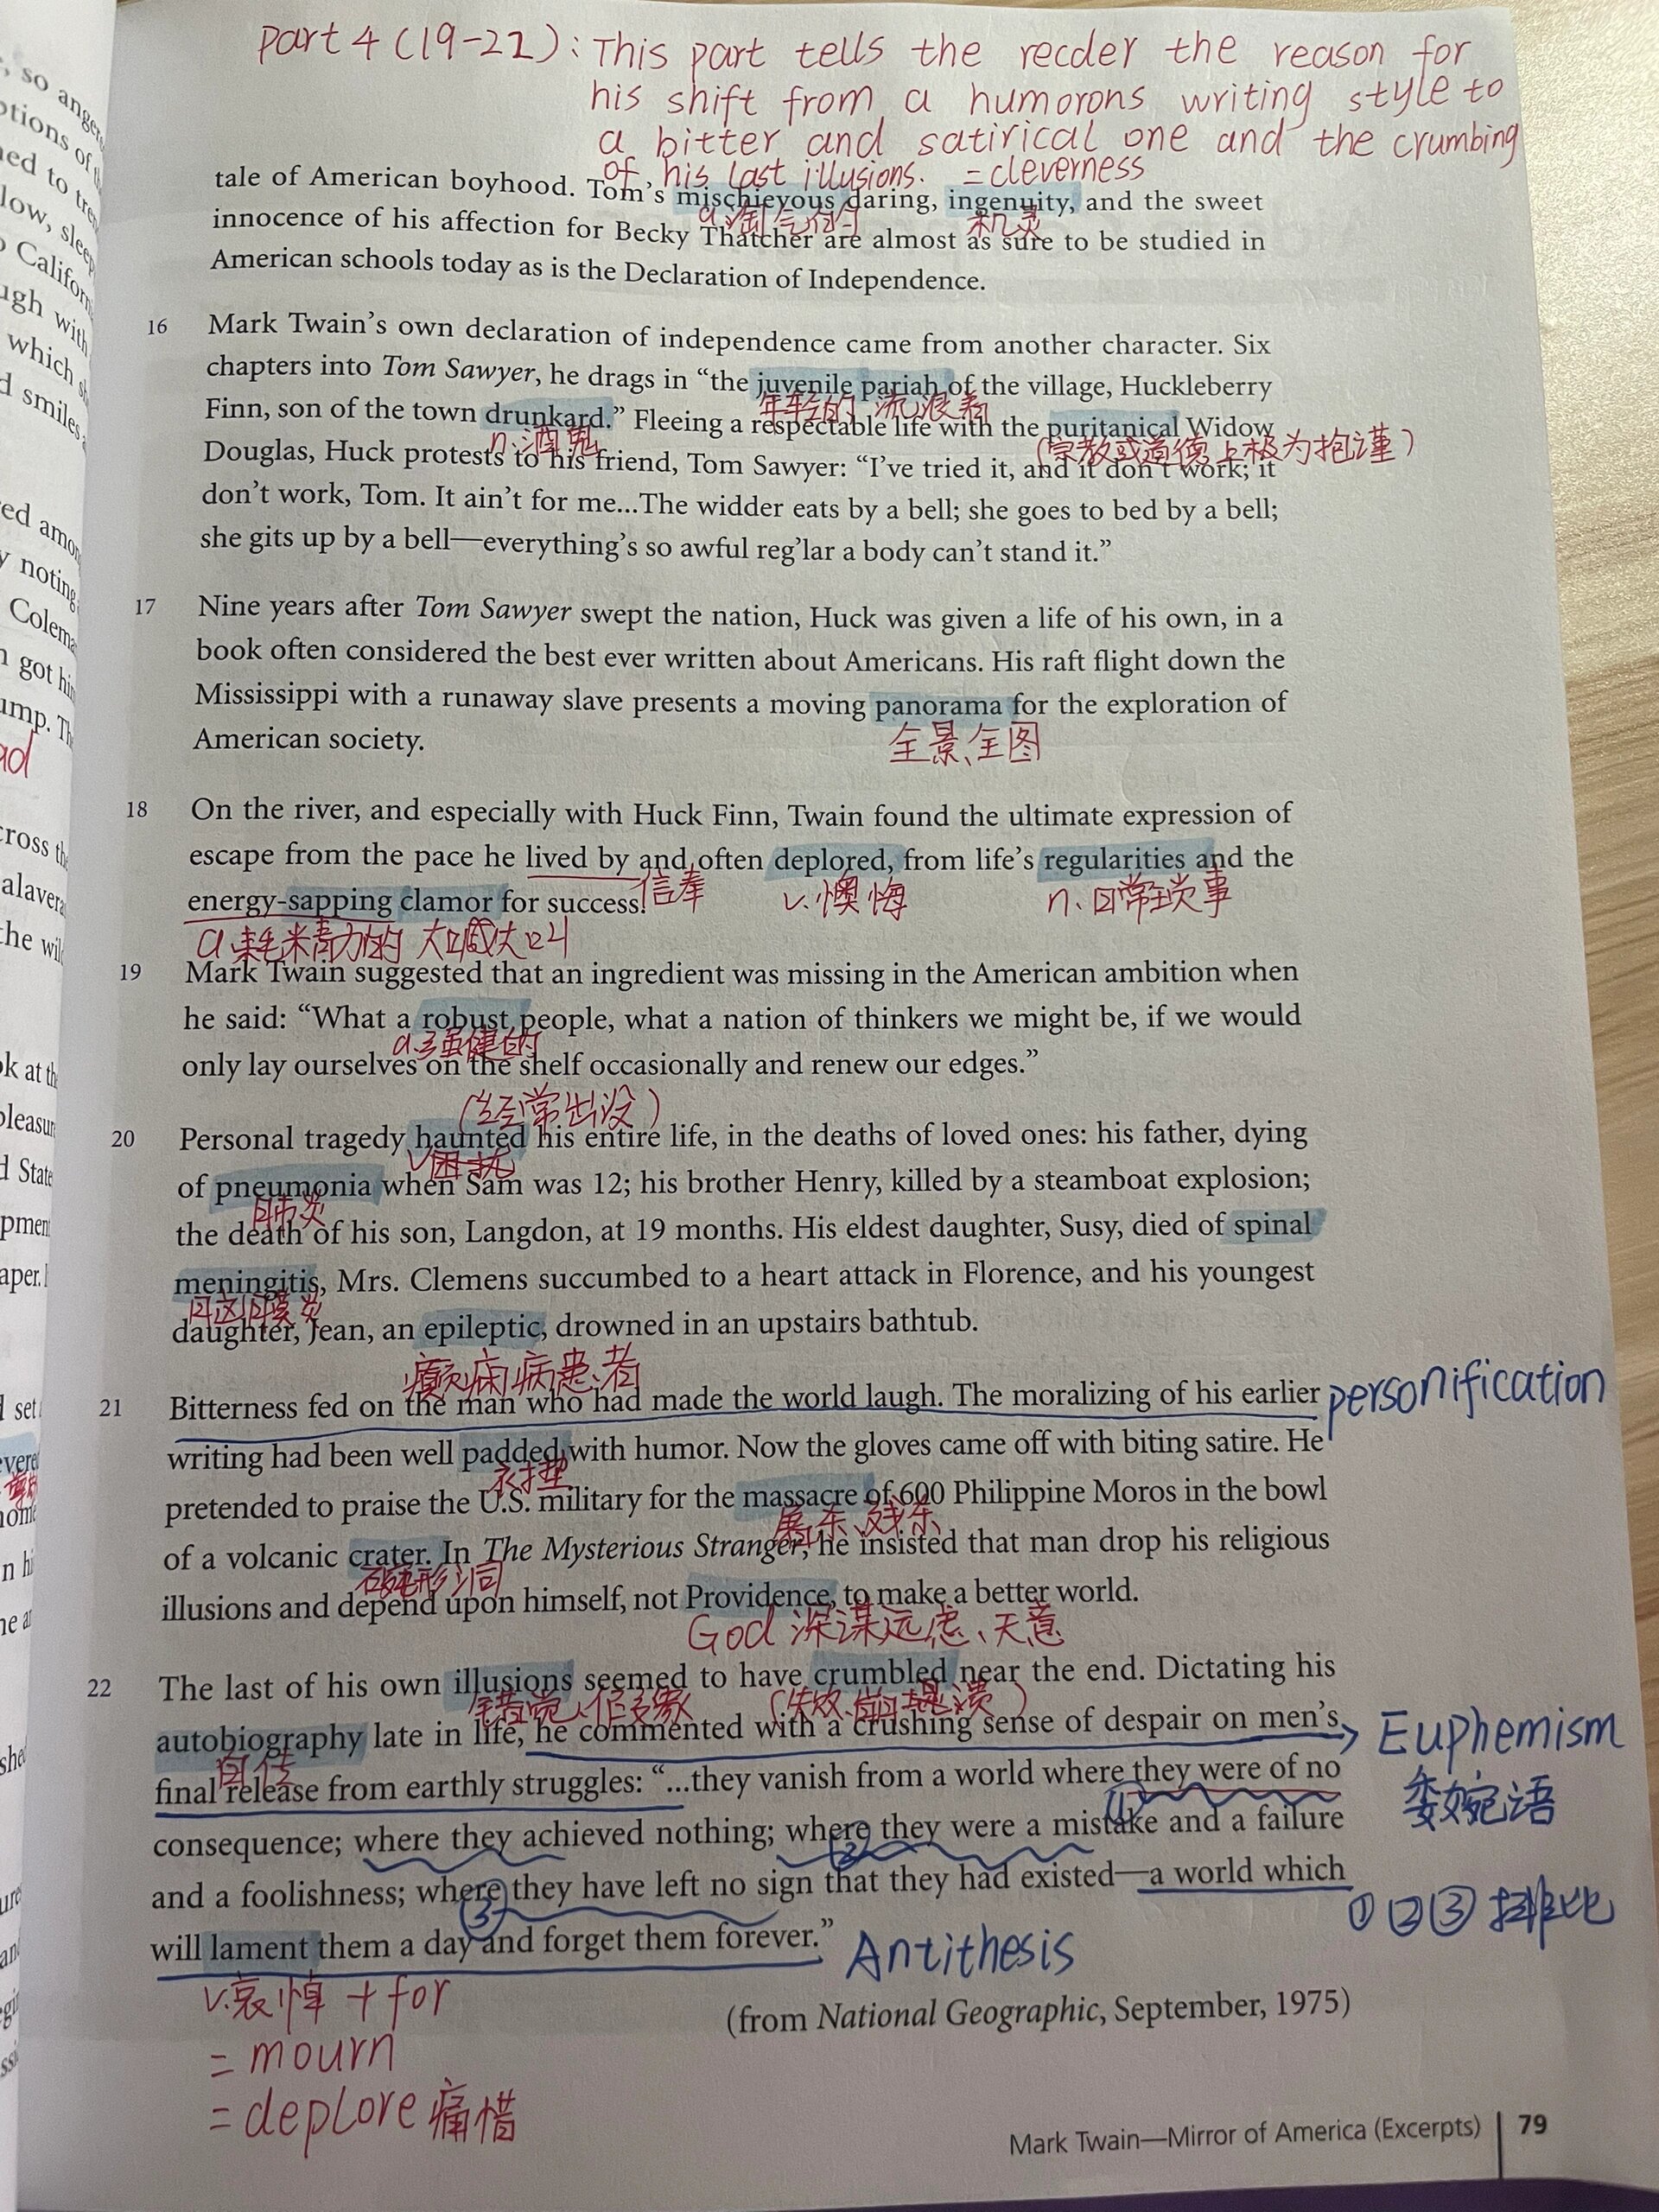 Part 4 (19-22): This part tells the recder the reason for
his shift from a humorons writing style to
a bitter and satirical one and the crumbing
of his last illusions. =cleverness
tale of American boyhood. Tom's mischievous daring, ingenuity, and the sweet
a.淘气的 机灵
innocence of his affection for Becky Thatcher are almost as sure to be studied in
American schools today as is the Declaration of Independence.
16 Mark Twain's own declaration of independence came from another character. Six
chapters into Tom Sawyer, he drags in “the juvenile pariah of the village, Huckleberry
年轻的 流浪者
Finn, son of the town drunkard.” Fleeing a respectable life with the puritanical Widow
n.酒鬼 (宗教或道德上极为拘谨)
Douglas, Huck protests to his friend, Tom Sawyer: “I've tried it, and it don't work; it
don't work, Tom. It ain't for me...The widder eats by a bell; she goes to bed by a bell;
she gits up by a bell—everything's so awful reg'lar a body can't stand it.”
17 Nine years after Tom Sawyer swept the nation, Huck was given a life of his own, in a
book often considered the best ever written about Americans. His raft flight down the
Mississippi with a runaway slave presents a moving panorama for the exploration of
American society.
全景、全图
18 On the river, and especially with Huck Finn, Twain found the ultimate expression of
escape from the pace he lived by and often deplored, from life's regularities and the
信奉 v.懊悔 n.日常琐事
energy-sapping clamor for success.
a.耗精力的 大喊大叫
19 Mark Twain suggested that an ingredient was missing in the American ambition when
he said: “What a robust people, what a nation of thinkers we might be, if we would
a.强健的
only lay ourselves on the shelf occasionally and renew our edges.”
(经常出没)
20 Personal tragedy haunted his entire life, in the deaths of loved ones: his father, dying
v困扰
of pneumonia when Sam was 12; his brother Henry, killed by a steamboat explosion;
肺炎
the death of his son, Langdon, at 19 months. His eldest daughter, Susy, died of spinal
meningitis, Mrs. Clemens succumbed to a heart attack in Florence, and his youngest
daughter, Jean, an epileptic, drowned in an upstairs bathtub.
癫痫病患者
21 Bitterness fed on the man who had made the world laugh. The moralizing of his earlier personification
writing had been well padded with humor. Now the gloves came off with biting satire. He
衣垫
pretended to praise the U.S. military for the massacre of 600 Philippine Moros in the bowl
屠杀、残杀
of a volcanic crater. In The Mysterious Stranger, he insisted that man drop his religious
碗形洞
illusions and depend upon himself, not Providence, to make a better world.
God 深谋远虑、天意
22 The last of his own illusions seemed to have crumbled near the end. Dictating his
错觉、假象 (失效、崩塌、崩溃)
autobiography late in life, he commented with a crushing sense of despair on men's Euphemism
自传
final release from earthly struggles: “...they vanish from a world where they were of no
委婉语
①
consequence; where they achieved nothing; where they were a mistake and a failure
②
and a foolishness; where they have left no sign that they had existed—a world which
③
①②③排比
will lament them a day and forget them forever.” Antithesis
v.哀悼 + for
(from National Geographic, September, 1975)
= mourn
= deplore 痛惜
Mark Twain—Mirror of America (Excerpts) | 79